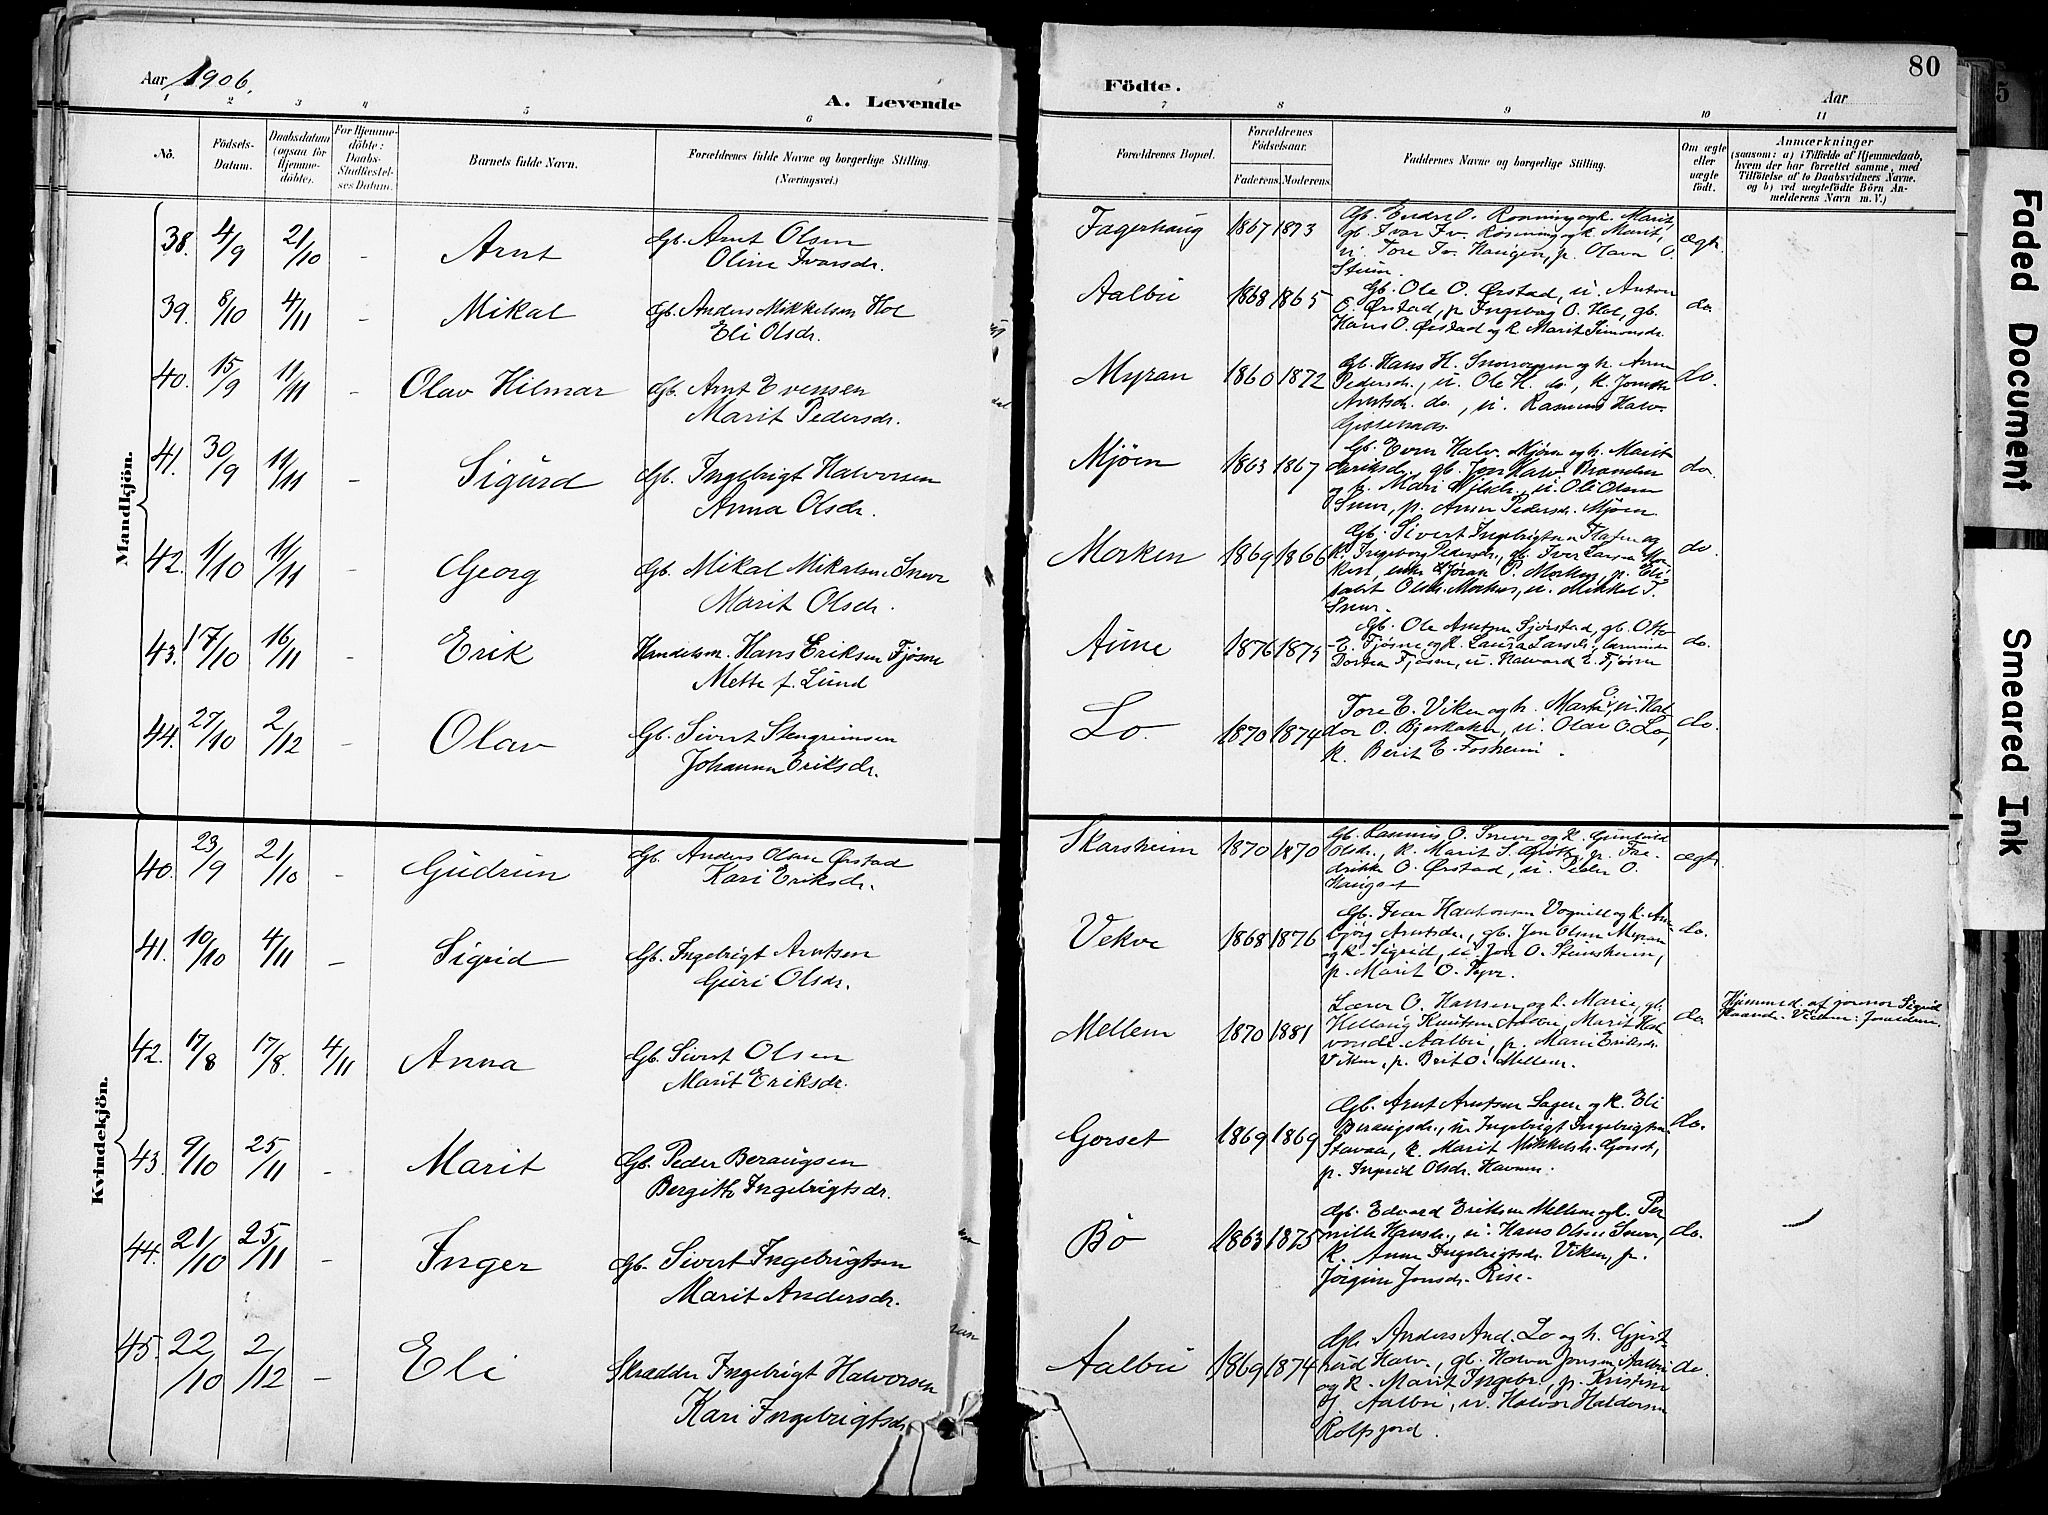 Aar 1906.
A. Levende
1 2 3 4 5 6
No. Födsels-Datum. Daabsdatum (ogsaa for Hjemme-döbte). For Hjemme-döbte: Daabs-Stadfæstel-ses Datum. Barnets fulde Navn. Forældrenes fulde Navne og borgerlige Stilling. (Næringsvei.)
Mandkjön.
38. 4/9 21/10 - Arnt Gb. Arnt Olsen
Oline Ivarsdr.
39. 8/10 4/11 - Mikal Gb. Anders Mikkelsen Hol
Eli Olsdr.
40. 15/9 11/11 - Olav Hilmar Gb. Arnt Evensen
Marit Pedersdr.
41. 30/9 11/11 - Sigurd Gb. Ingebrigt Halvorsen
Anna Olsdr.
42. 1/10 11/11 - Georg Gb. Mikal Mikalsen Snever
Marit Olsdr.
43. 17/10 16/11 - Erik Handelsm. Hans Eriksen Fjøsne
Mette f. Lund
44. 27/10 2/12 - Olav Gb. Sivert Stengrimsen
Johanna Eriksdr.
Kvindekjön.
40. 23/9 21/10 - Gudrun Gb. Anders Olsen Ørstad
Kari Eriksdr.
41. 10/10 4/11 - Sigrid Gb. Ingebrigt Arntsen
Guri Olsdr.
42. 17/8 17/8. 4/11 Anna Gb. Sivert Olsen
Marit Eriksdr.
43. 9/10 25/11 - Marit Gb. Peder Beraugsen
Bergitte Ingebrigtsdr.
44. 21/10 25/11 - Inger Gb. Sivert Ingebrigtsen
Marit Andersdr.
45. 22/10 2/12 - Eli Skrædder Ingebrigt Halvorsen
Kari Ingebrigtsdr
80
Födte.
Aar
7 8 9 10 11
Forældrenes Bopæl. Forældrenes Födselsaar. Faderens. Moderens. Faddernes Navne og borgerlige Stilling. Om ægte eller uægte födt. Anmærkninger
(saasom: a) i Tilfælde af Hjemmedaab, hvem der har forrettet samme, med Tilföielse af to Daabsvidners Navne. og b) ved uægtefödte Börn Anmelderens Navn m. V.)
Fagerhaug 1867 1873 Gb. Endre O. Rønning og k. Marit, ægt.
gb. Ivar Iv. Rønning og k. Marit,
u. Tore Iv. Haugen, p. Olava O.
Stuen.
Aalbu 1868 1865 Gb. Ole O. Ørstad, u. Anton do.
O. Ørstad, p. Ingeborg O. Hol, gb.
Hans O. Ørstad og k. Marit Simonsdr.
Myran 1860 1872 Gb. Hans H. Snoroggen og k. Anne do.
Pedersdr., u. Ole H. do,
Arntsdr. do, u. Rasmus Halv.
Gisnaas.
Mjøen 1863 1867 Gb. Even Halv. Mjøen og k. Marit do
Eriksdr., gb. Jon Halv.
og k. Mari Nilsdr., u. Ole Olsen
Snever, p. Anne Pedersdr. Mjøen.
Morken 1869 1866 Gb. Sivert Ingebrigtsen og do.
k. Ingeborg Pedersdr., gb. Iver Larsen Mor-
ken, enke Gjøran P. Morken, p. Eli-
sabet Olsdr. Morken, u. Mikkel T.
Snever.
Aune 1876 1875 Gb. Ole Arntsen Sjørstad, gb. Otto do.
E. Fjøsne og k. Laura Larsdr.,
Dortea Fjøsne, u. Halvard E. Fjøsne
Lo. 1870 1874 Tore E. Viken og k. Marta O., u. Hal- do.
dor O. Bjerkaker, u. Olav O. Lo,
k. Berit E. Fosheim.
Skarsheim 1870 1870 Gb. Rasmus O. Snever og k. Gunhild ægt.
Olsdr., k. Marit S. p. Fre-
drikke O. Ørstad, u. Peder O.
Haugset
Vekve 1868 1876 Gb. Ivar Haakonsen Vognill og k. Ane do.
bjørg Arntsdr., gb. Jon Olsen Myran
og k. Sigrid, u. Jon O. Steinsheim,
p. Marit O.
Mellem 1870 1881 Lærer O. Hansen og k. Marie, gb. do. Hjemmed. af jormor Sigrid
Hellaug Knutsen Aalbu, Marit Hal-
vorsdr. Aalbu, p. Mari Eriksdr.
Viken, p. Brit O. Mellem.
Gorset 1869 1869 Gb. Arnt Arntsen Sagen og k. Eli do.
Beraugsdr., u. Ingebrigt Ingebrigtsen
Stavaa, k. Marit Mikkelsdr. Gorset,
p. Ingrid Olsdr. Havnen.
Bø 1863 1875 Gb. Edvard Eriksen Mellem og k. Per do.
nille Hansdr., u. Hans Olsen Snever,
k. Anne Ingebrigtsdr. Viken, p.
Jørgine Jonsdr. Rise.
Aalbu 1869 1874 Gb. Anders And. Lo og k. Gjert- do.
rud Halv., gb. Halvor Jonsen Aalbu
og k. Marit Ingebr., p. Kristine
J. Aalbu, u. Halvor Haldorsen
Rolfsjord.
Faded Document
Smeared Ink